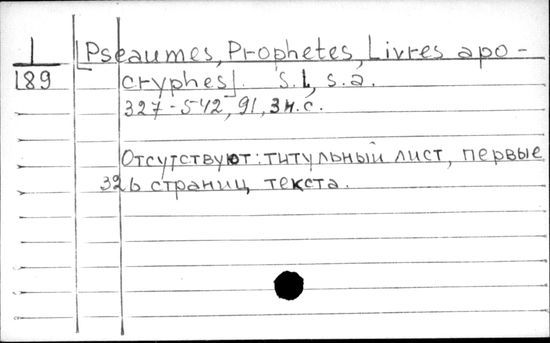 I
189
[Pseaumes, Prophetes, Livres apo-
cryphes]. S.l., s.a.
327-542, 91, 3 н.с.
Отсутствуют: титульный лист, первые
326 страниц текста.